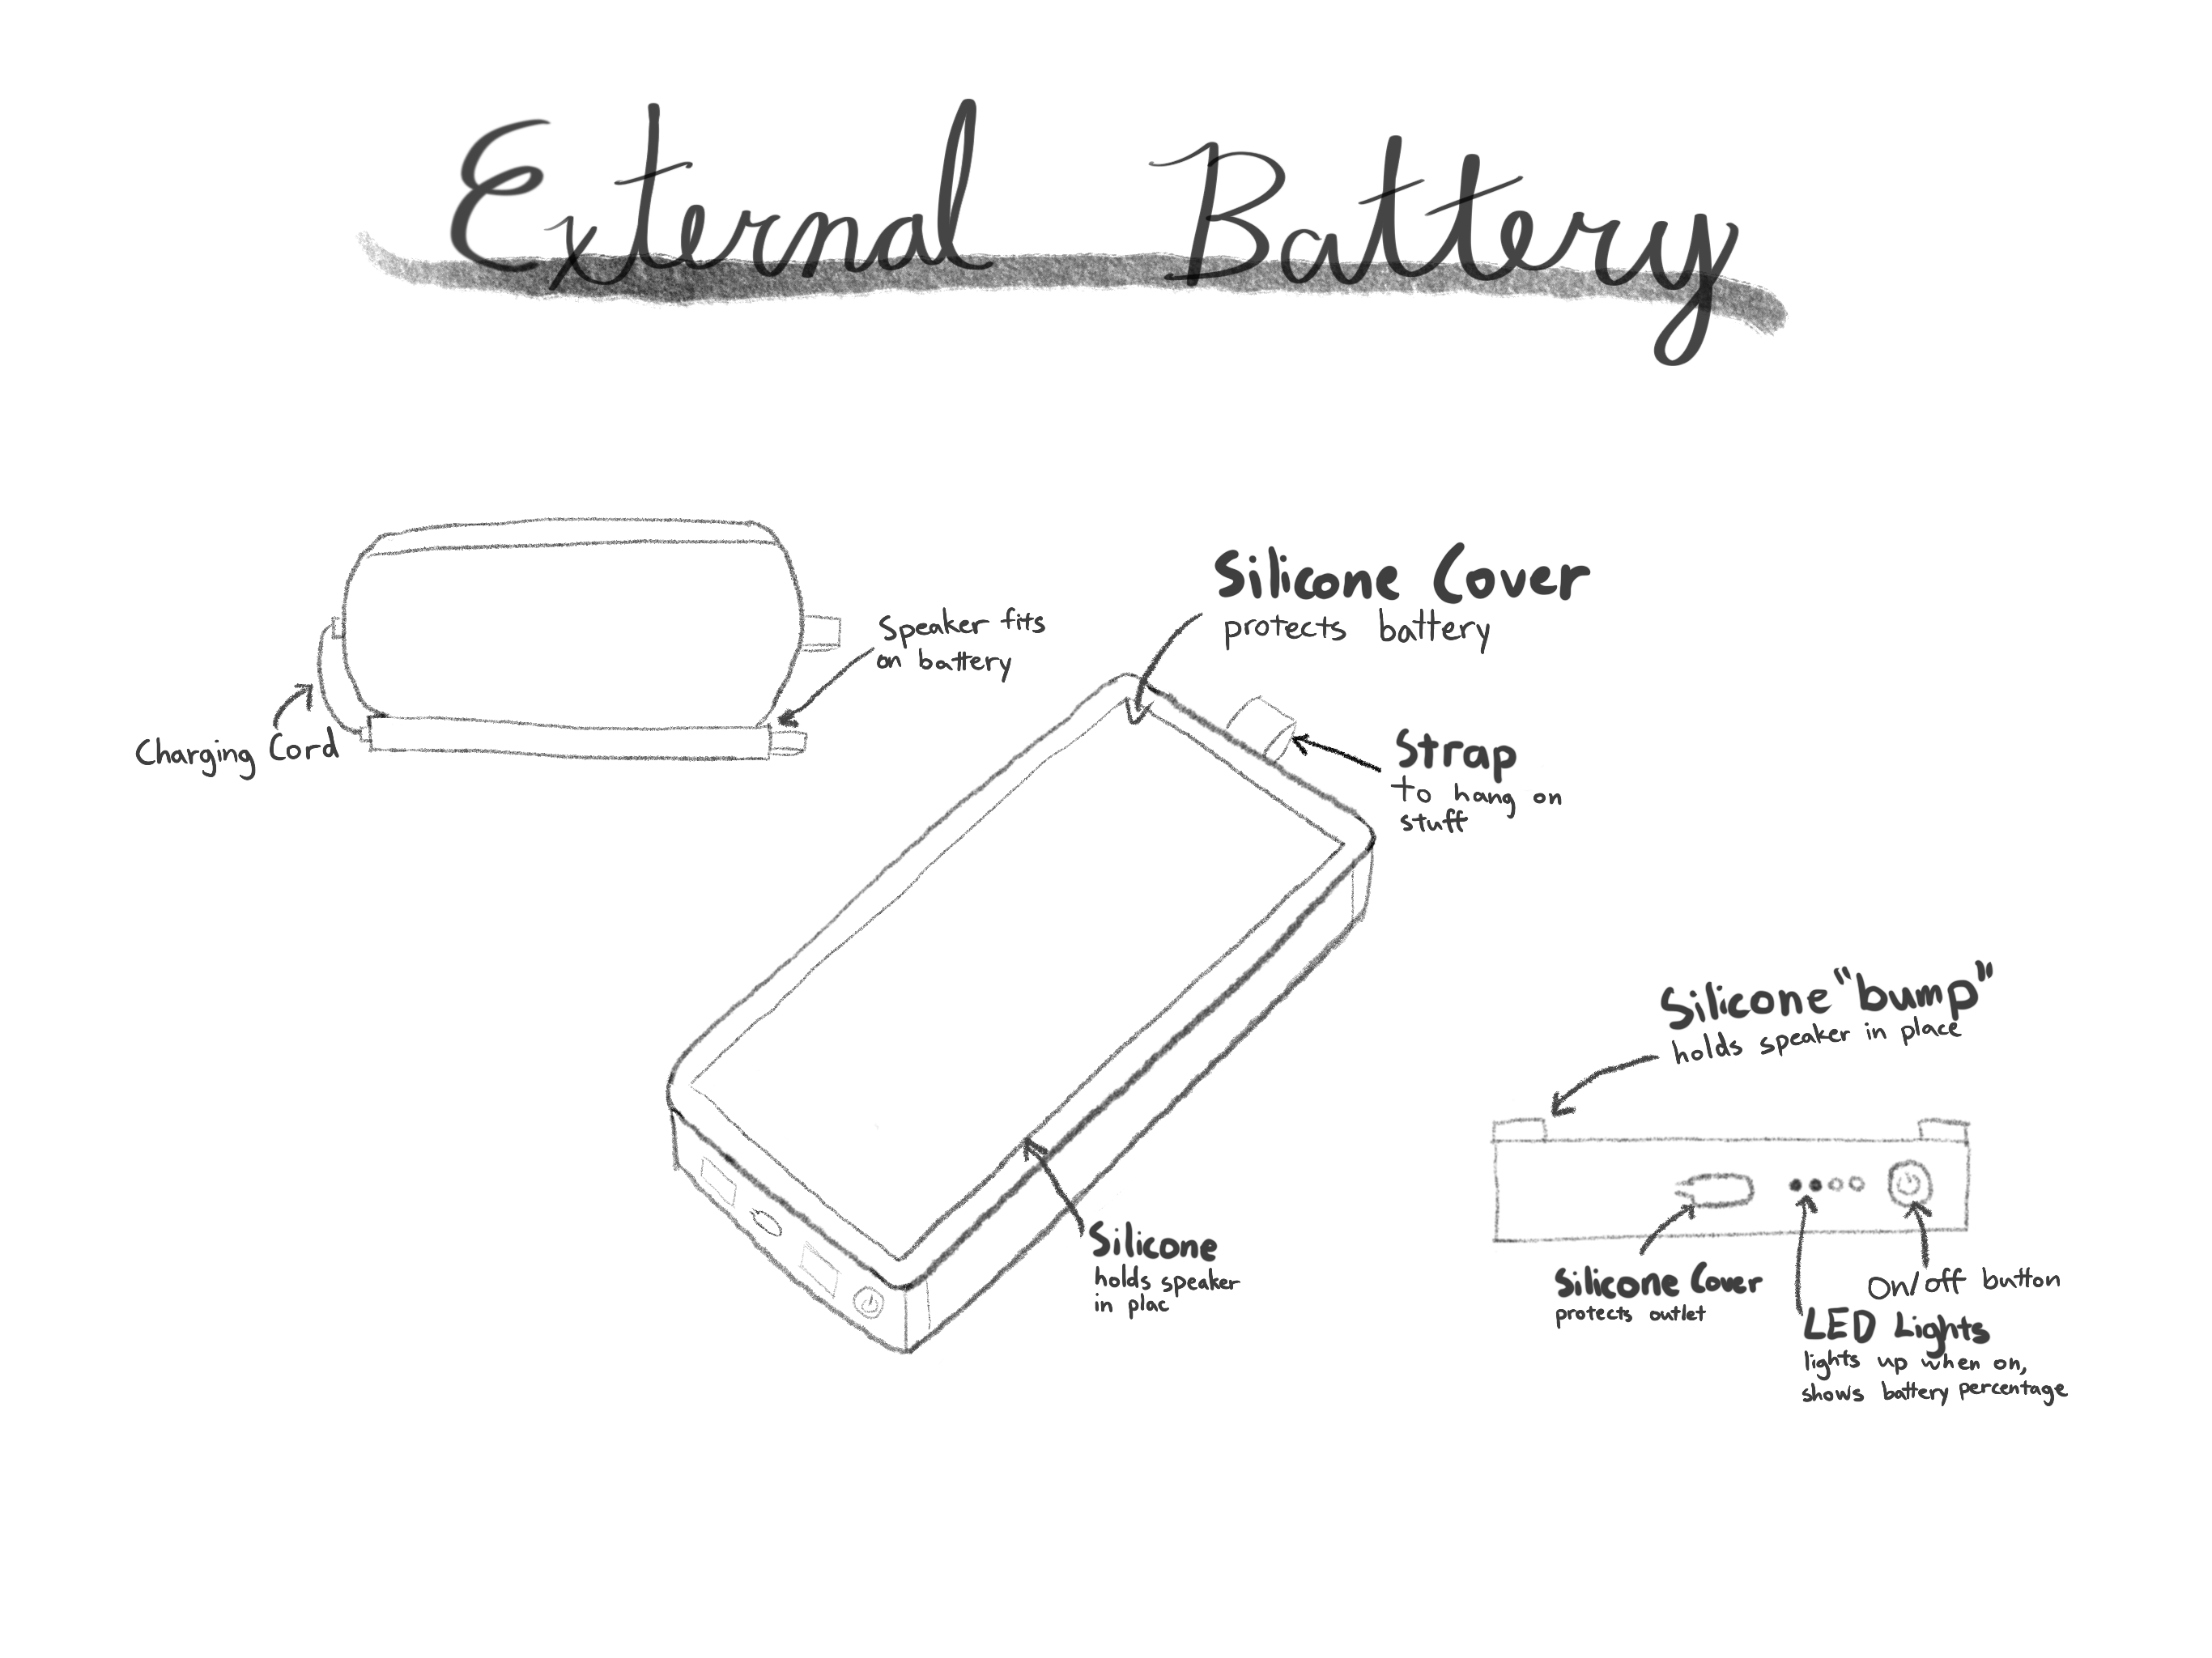 External Battery
Speaker fits
on battery
Charging Cord
Silicone Cover
protects battery
Strap
to hang on
stuff
Silicone
holds speaker
in plac
Silicone "bump"
holds speaker in place
Silicone Cover
protects outlet
On/off button
LED Lights
lights up when on,
shows battery percentage